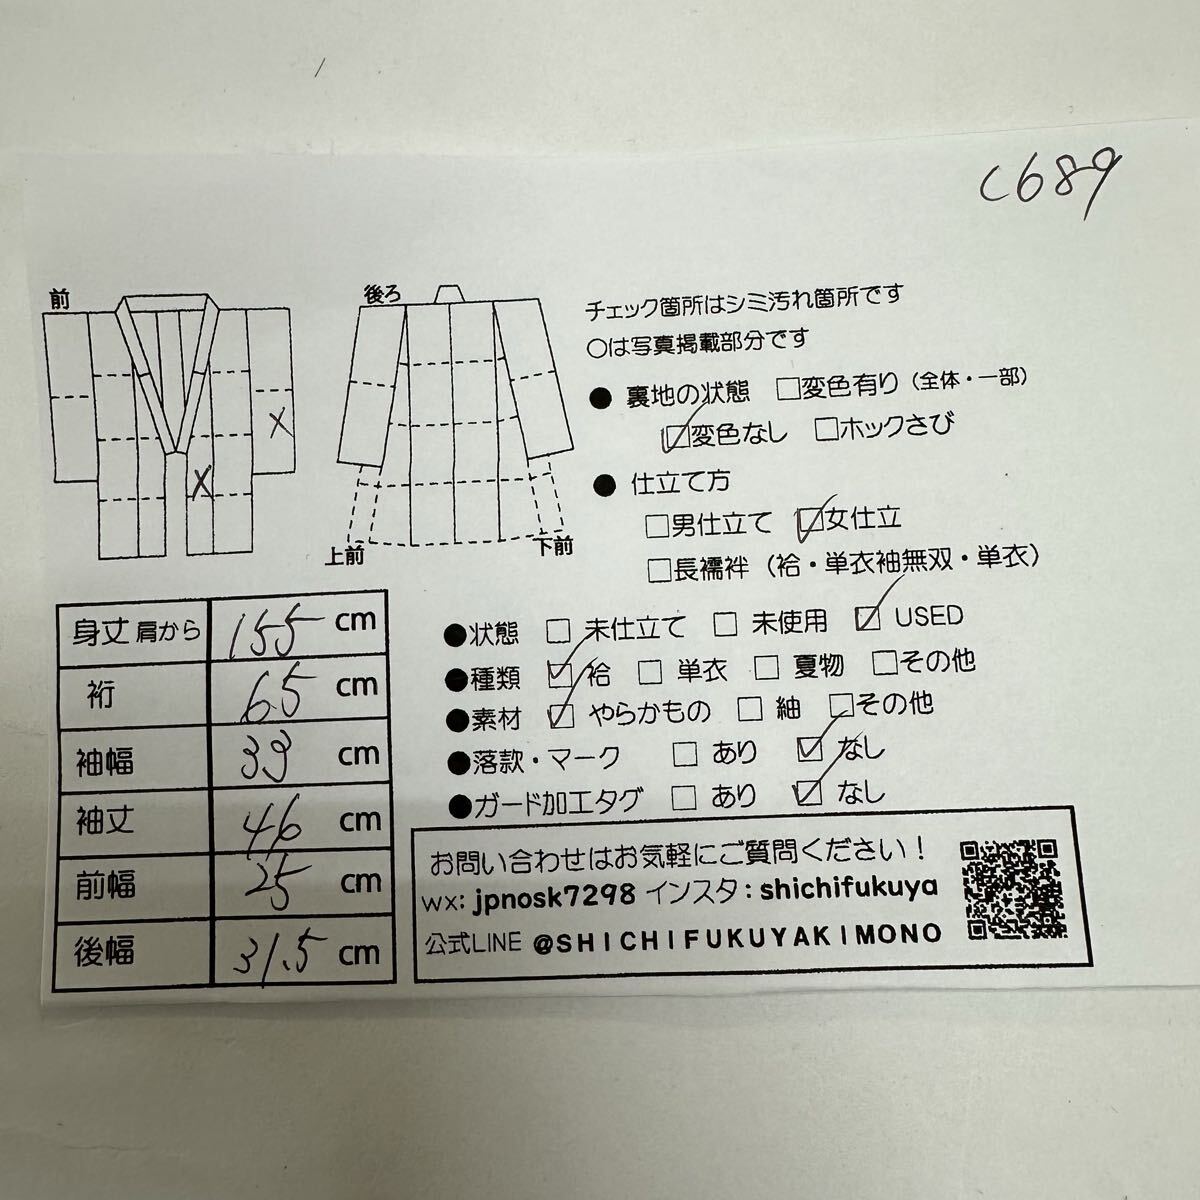 C689
前
後ろ
上前
下前
チェック箇所はシミ汚れ箇所です
〇は写真掲載部分です
● 裏地の状態 □変色有り（全体・一部）
☑変色なし □ホックさび
● 仕立て方
□男仕立て ☑女仕立
□長襦袢（袷・単衣袖無双・単衣）
●状態 □ 未仕立て □ 未使用 ☑ USED
●種類 ☑ 袷 □ 単衣 □ 夏物 □その他
●素材 ☑ やらかもの □ 紬 □その他
●落款・マーク □ あり ☑ なし
●ガード加工タグ □ あり ☑ なし
身丈 肩から 155 cm
裄 65 cm
袖幅 33 cm
袖丈 46 cm
前幅 25 cm
後幅 31.5 cm
お問い合わせはお気軽にご質問ください！
wx: jpnosk7298 インスタ：shichifukuya
公式LINE @SHICHIFUKUYAKIMONO